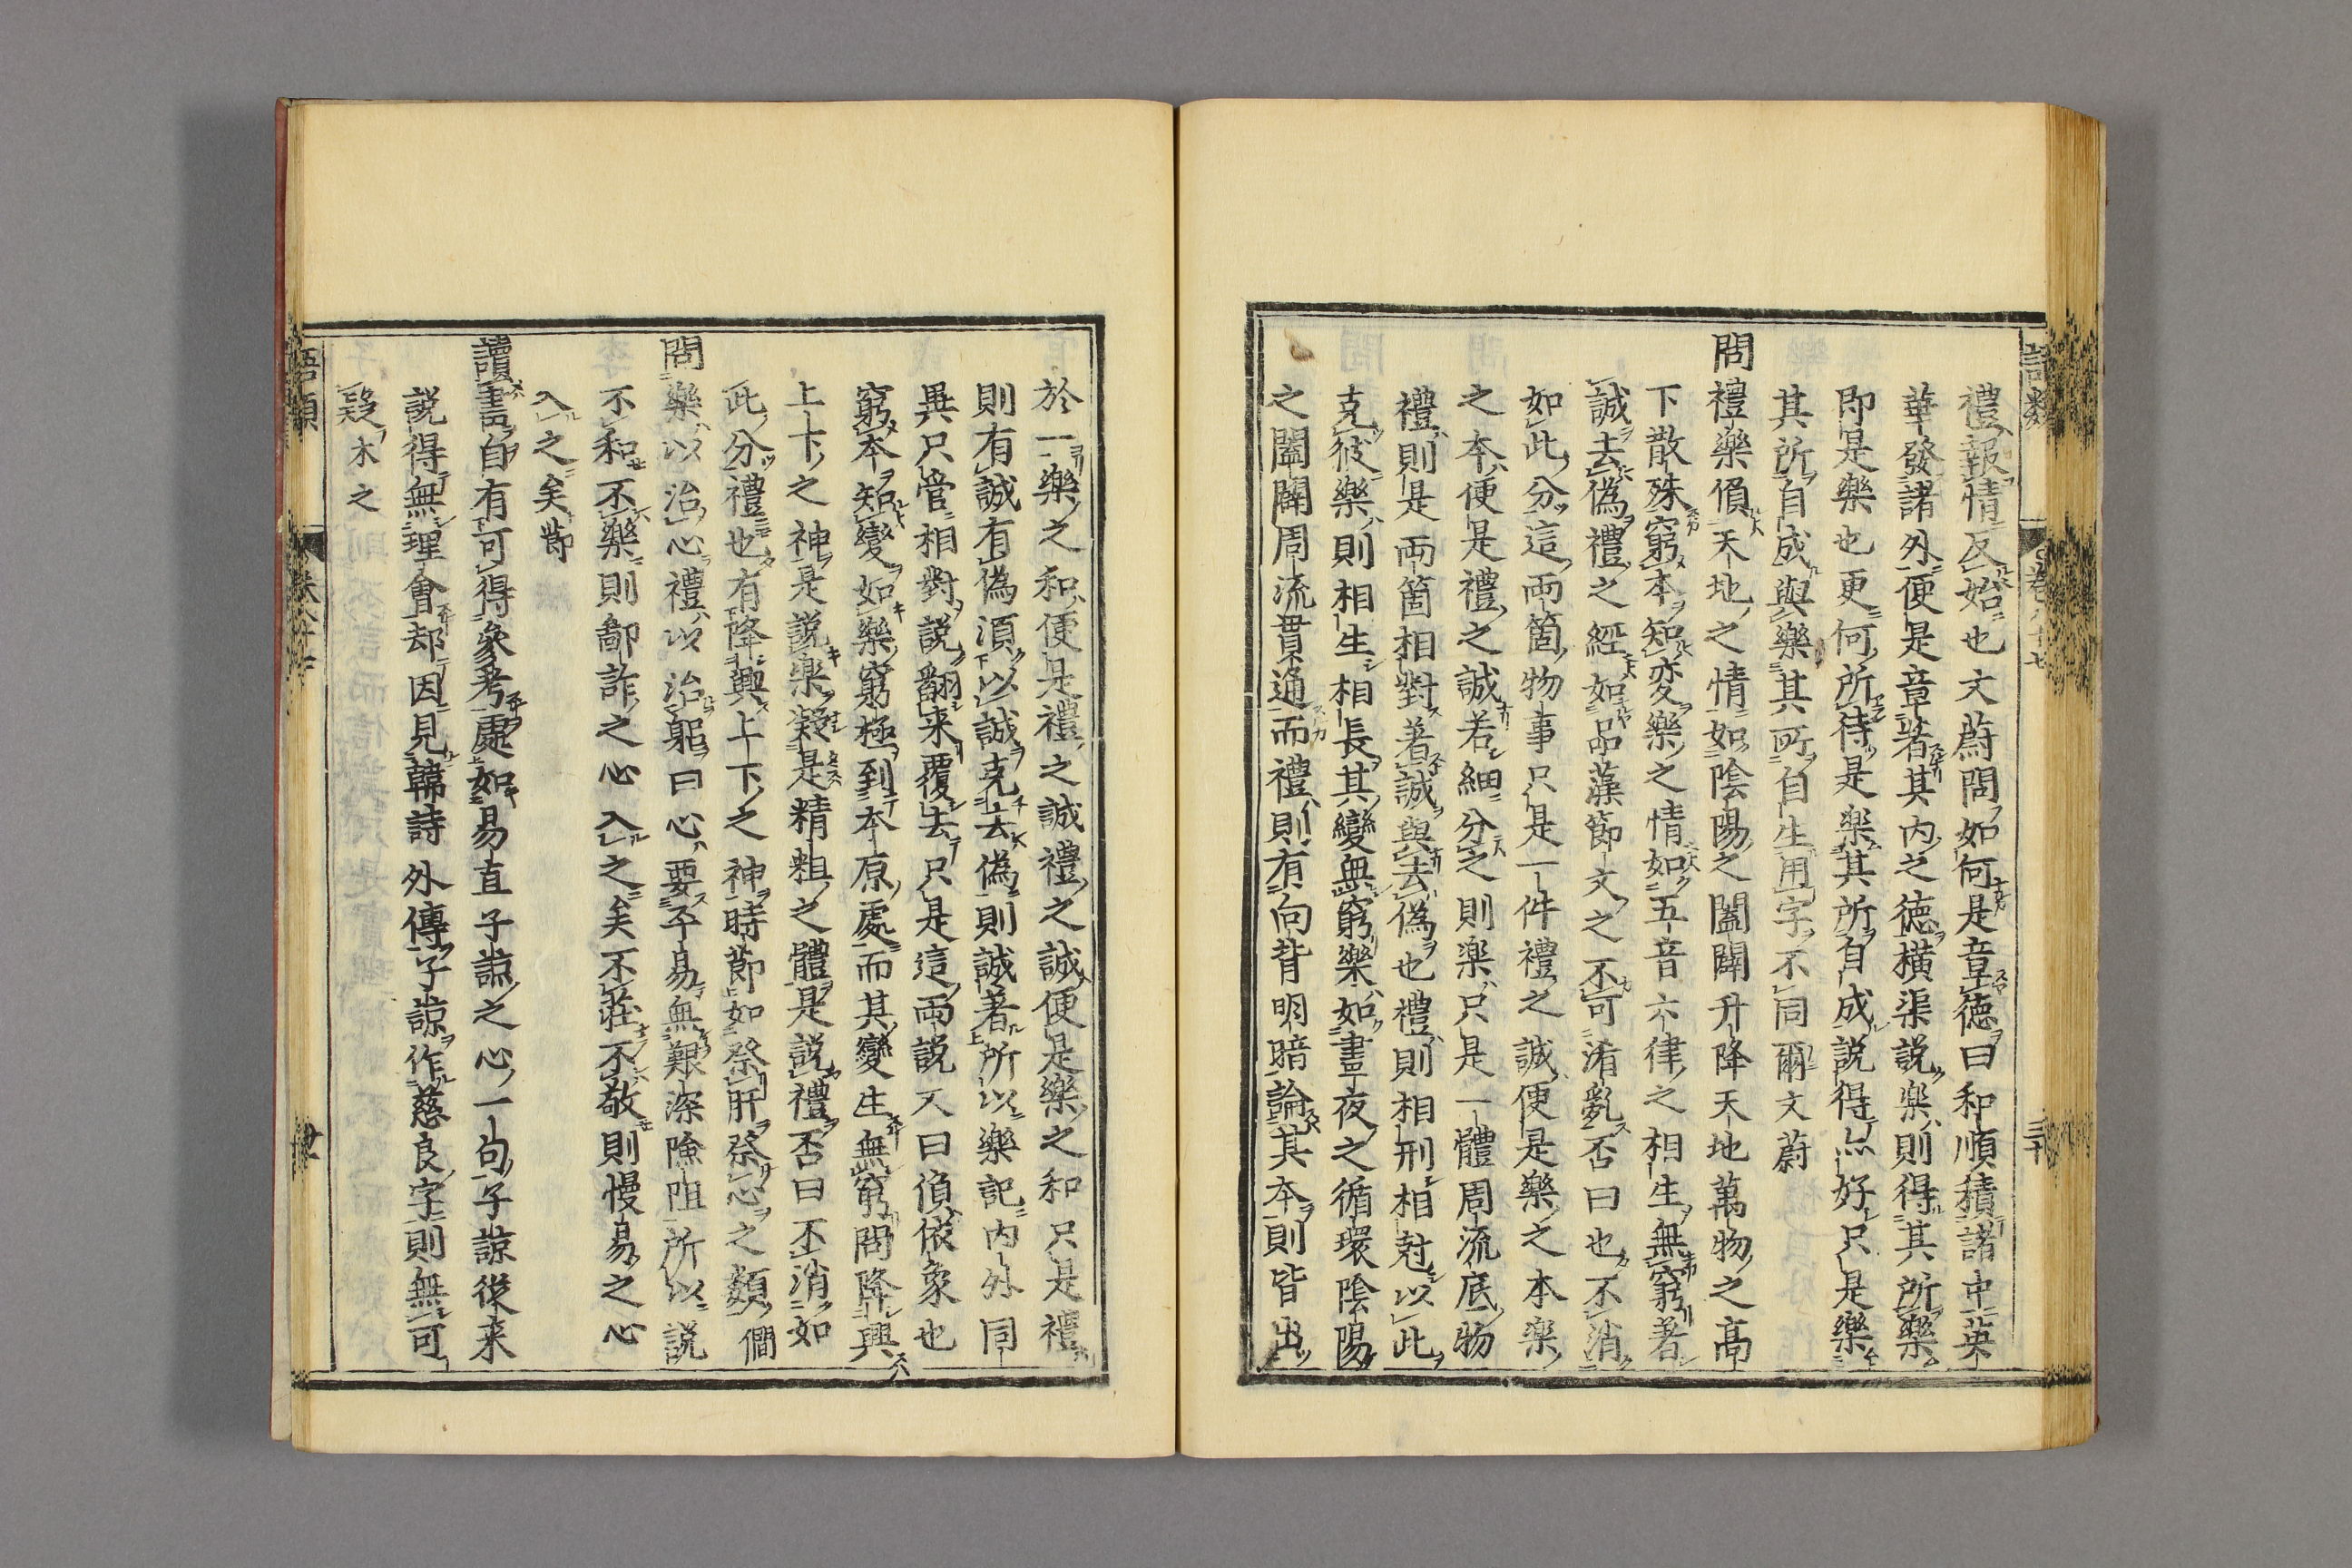 禮報情反始也文蔚問如何是章德曰和順積諸中英
華發諸外便是章著其内之德橫渠説楽則得其所樂
即是樂也更何所待是楽其所自成説得亦好只是樂
其所自成與樂其所自生用字不同爾文蔚
問禮樂偩天地之情如陰陽之闔闢升降天地萬物之高
下散殊窮本知変樂之情如五音六律之相生無窮著
誠去偽禮之經如品藻節文之不可淆亂否曰也不消
如此分這兩箇物事只是一件禮之誠便是樂之本楽
之本便是禮之誠若細分之則楽只是一體周流底物
禮則是兩箇相對著誠與去偽也禮則相刑相尅以此
克彼樂則相生相長其變無窮樂如晝夜之循環陰陽
之闔闢周流貫通而禮則有向背明暗論其本則皆出
於一樂之和便是禮之誠禮之誠便是樂之和只是禮
則有誠有偽須以誠克去偽則誠著所以樂記内外同
異只管相對説翻来覆去只是這兩説又曰偩依象也
窮本知變如樂窮極到本原處而其變生無窮問降興
上下之神是説楽凝是精粗之體是説禮否曰不消如
此分禮也有降興上下之神時節如祭肝祭心之類僩
問樂以治心禮以治躬曰心要平易無艱深險阻所以説
不和不樂則鄙詐之心入之矣不莊不敬則慢易之心
入之矣節
讀書自有可得參考處如易直子諒之心一句子諒從来
説得無理會却因見韓詩外傳子諒作慈良字則無可
疑木之
語類
卷八十七
三十